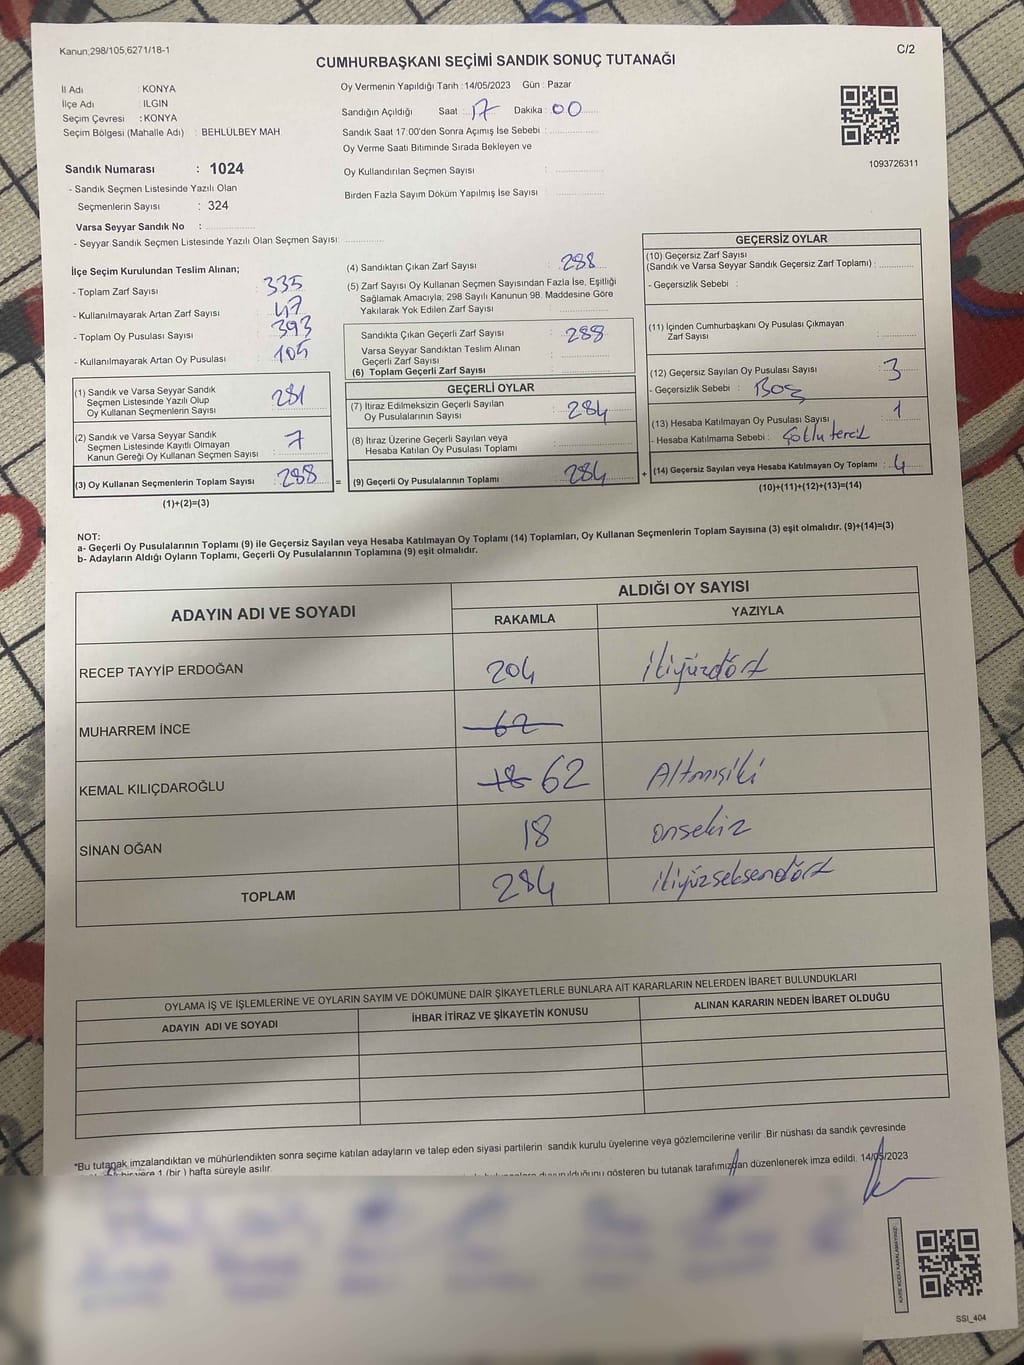 Kanun;298/105,6271/18-1
C/2
CUMHURBAŞKANI SEÇİMİ SANDIK SONUÇ TUTANAĞI
İl Adı : KONYA
İlçe Adı : ILGIN
Seçim Çevresi : KONYA
Seçim Bölgesi (Mahalle Adı) : BEHLÜLBEY MAH
Oy Vermenin Yapıldığı Tarih : 14/05/2023 Gün : Pazar
Sandığın Açıldığı Saat : 17 Dakika : 00
Sandık Saat 17:00'den Sonra Açımış İse Sebebi :
Oy Verme Saati Bitiminde Sırada Bekleyen ve
Oy Kullandırılan Seçmen Sayısı :
Birden Fazla Sayım Döküm Yapılmış İse Sayısı
1093726311
Sandık Numarası : 1024
- Sandık Seçmen Listesinde Yazılı Olan
Seçmenlerin Sayısı : 324
Varsa Seyyar Sandık No :
- Seyyar Sandık Seçmen Listesinde Yazılı Olan Seçmen Sayısı:
İlçe Seçim Kurulundan Teslim Alınan;
- Toplam Zarf Sayısı : 335
- Kullanılmayarak Artan Zarf Sayısı : 47
- Toplam Oy Pusulası Sayısı : 393
- Kullanılmayarak Artan Oy Pusulası : 105
(1) Sandık ve Varsa Seyyar Sandık
Seçmen Listesinde Yazılı Olup
Oy Kullanan Seçmenlerin Sayısı : 281
(2) Sandık ve Varsa Seyyar Sandık
Seçmen Listesinde Kayıtlı Olmayan
Kanun Gereği Oy Kullanan Seçmen Sayısı : 7
(3) Oy Kullanan Seçmenlerin Toplam Sayısı : 288
(1)+(2)=(3)
=
(4) Sandıktan Çıkan Zarf Sayısı : 288
(5) Zarf Sayısı Oy Kullanan Seçmen Sayısından Fazla İse, Eşitliği
Sağlamak Amacıyla; 298 Sayılı Kanunun 98. Maddesine Göre
Yakılarak Yok Edilen Zarf Sayısı :
Sandıkta Çıkan Geçerli Zarf Sayısı : 288
Varsa Seyyar Sandıktan Teslim Alınan
Geçerli Zarf Sayısı :
(6) Toplam Geçerli Zarf Sayısı :
GEÇERLİ OYLAR
(7) İtiraz Edilmeksizin Geçerli Sayılan
Oy Pusulalarının Sayısı : 284
(8) İtiraz Üzerine Geçerli Sayılan veya
Hesaba Katılan Oy Pusulası Toplamı :
(9) Geçerli Oy Pusulalarının Toplamı : 284
+
GEÇERSİZ OYLAR
(10) Geçersiz Zarf Sayısı
(Sandık ve Varsa Seyyar Sandık Geçersiz Zarf Toplamı) :
- Geçersizlik Sebebi :
(11) İçinden Cumhurbaşkanı Oy Pusulası Çıkmayan
Zarf Sayısı :
(12) Geçersiz Sayılan Oy Pusulası Sayısı : 3
- Geçersizlik Sebebi : Boş
(13) Hesaba Katılmayan Oy Pusulası Sayısı : 1
- Hesaba Katılmama Sebebi :
(14) Geçersiz Sayılan veya Hesaba Katılmayan Oy Toplamı : 4
(10)+(11)+(12)+(13)=(14)
NOT:
a- Geçerli Oy Pusulalarının Toplamı (9) ile Geçersiz Sayılan veya Hesaba Katılmayan Oy Toplamı (14) Toplamları, Oy Kullanan Seçmenlerin Toplam Sayısına (3) eşit olmalıdır. (9)+(14)=(3)
b- Adayların Aldığı Oyların Toplamı, Geçerli Oy Pusulalarının Toplamına (9) eşit olmalıdır.
ADAYIN ADI VE SOYADI
ALDIĞI OY SAYISI
RAKAMLA YAZIYLA
RECEP TAYYİP ERDOĞAN 204 ikiyüzdört
MUHARREM İNCE 62
KEMAL KILIÇDAROĞLU 18 62 Altmışiki
SİNAN OĞAN 18 onsekiz
TOPLAM 284 ikiyüzseksendört
OYLAMA İŞ VE İŞLEMLERİNE VE OYLARIN SAYIM VE DÖKÜMÜNE DAİR ŞİKAYETLERLE BUNLARA AİT KARARLARIN NELERDEN İBARET BULUNDUKLARI
ADAYIN ADI VE SOYADI İHBAR İTİRAZ VE ŞİKAYETİN KONUSU ALINAN KARARIN NEDEN İBARET OLDUĞU
*Bu tutanak imzalandıktan ve mühürlendikten sonra seçime katılan adayların ve talep eden siyasi partilerin sandık kurulu üyelerine veya gözlemcilerine verilir .Bir nüshası da sandık çevresinde
1 (bir ) hafta süreyle asılır.
duyurulduğunu gösteren bu tutanak tarafımızdan düzenlenerek imza edildi. 14/05/2023
KARE KODU KARALAMAYINIZ
SSI_404